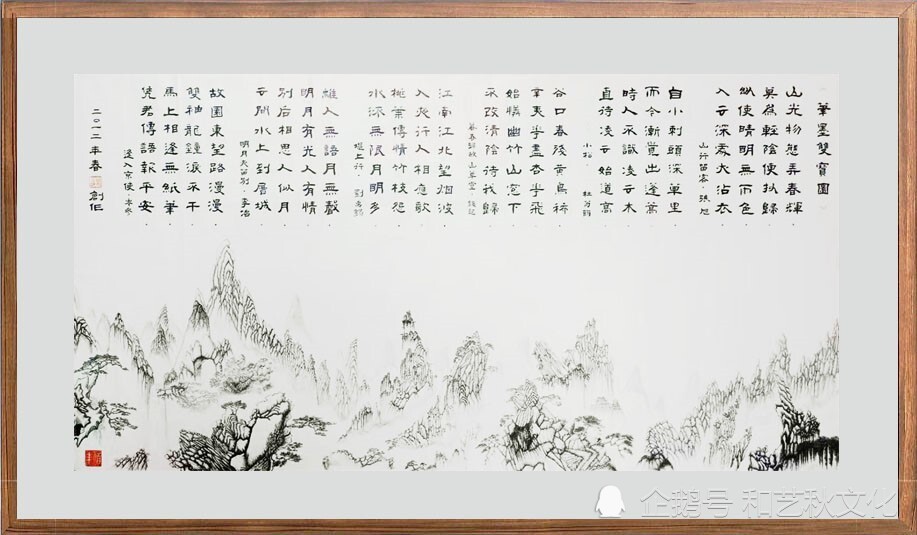 《筆墨雙寶圖》
山光物態弄春輝
莫為輕陰便擬歸
縱使晴明無雨色
入雲深處亦沾衣
山行留客·張旭
自小刺頭深草里
而今漸覺出蓬蒿
時人不識凌雲木
直待凌雲始道高
小松·杜荀鶴
谷口春殘黃鳥稀
辛夷花盡杏花飛
始憐幽竹山窗下
不改清陰待我歸
暮春歸故山草堂·錢起
江南江北望烟波
入夜行人相應歌
桃葉傳情竹枝怨
水流無限月明多
堤上行·劉禹錫
離人無語月無聲
明月有光人有情
別后相思人似月
雲間水上到層城
明月夜留別·李冶
故園東望路漫漫
雙袖龍鍾淚不干
馬上相逢無紙筆
憑君傳語報平安
逢入京使·岑參
二〇一二年春 創作
企鹅号 和艺秋文化